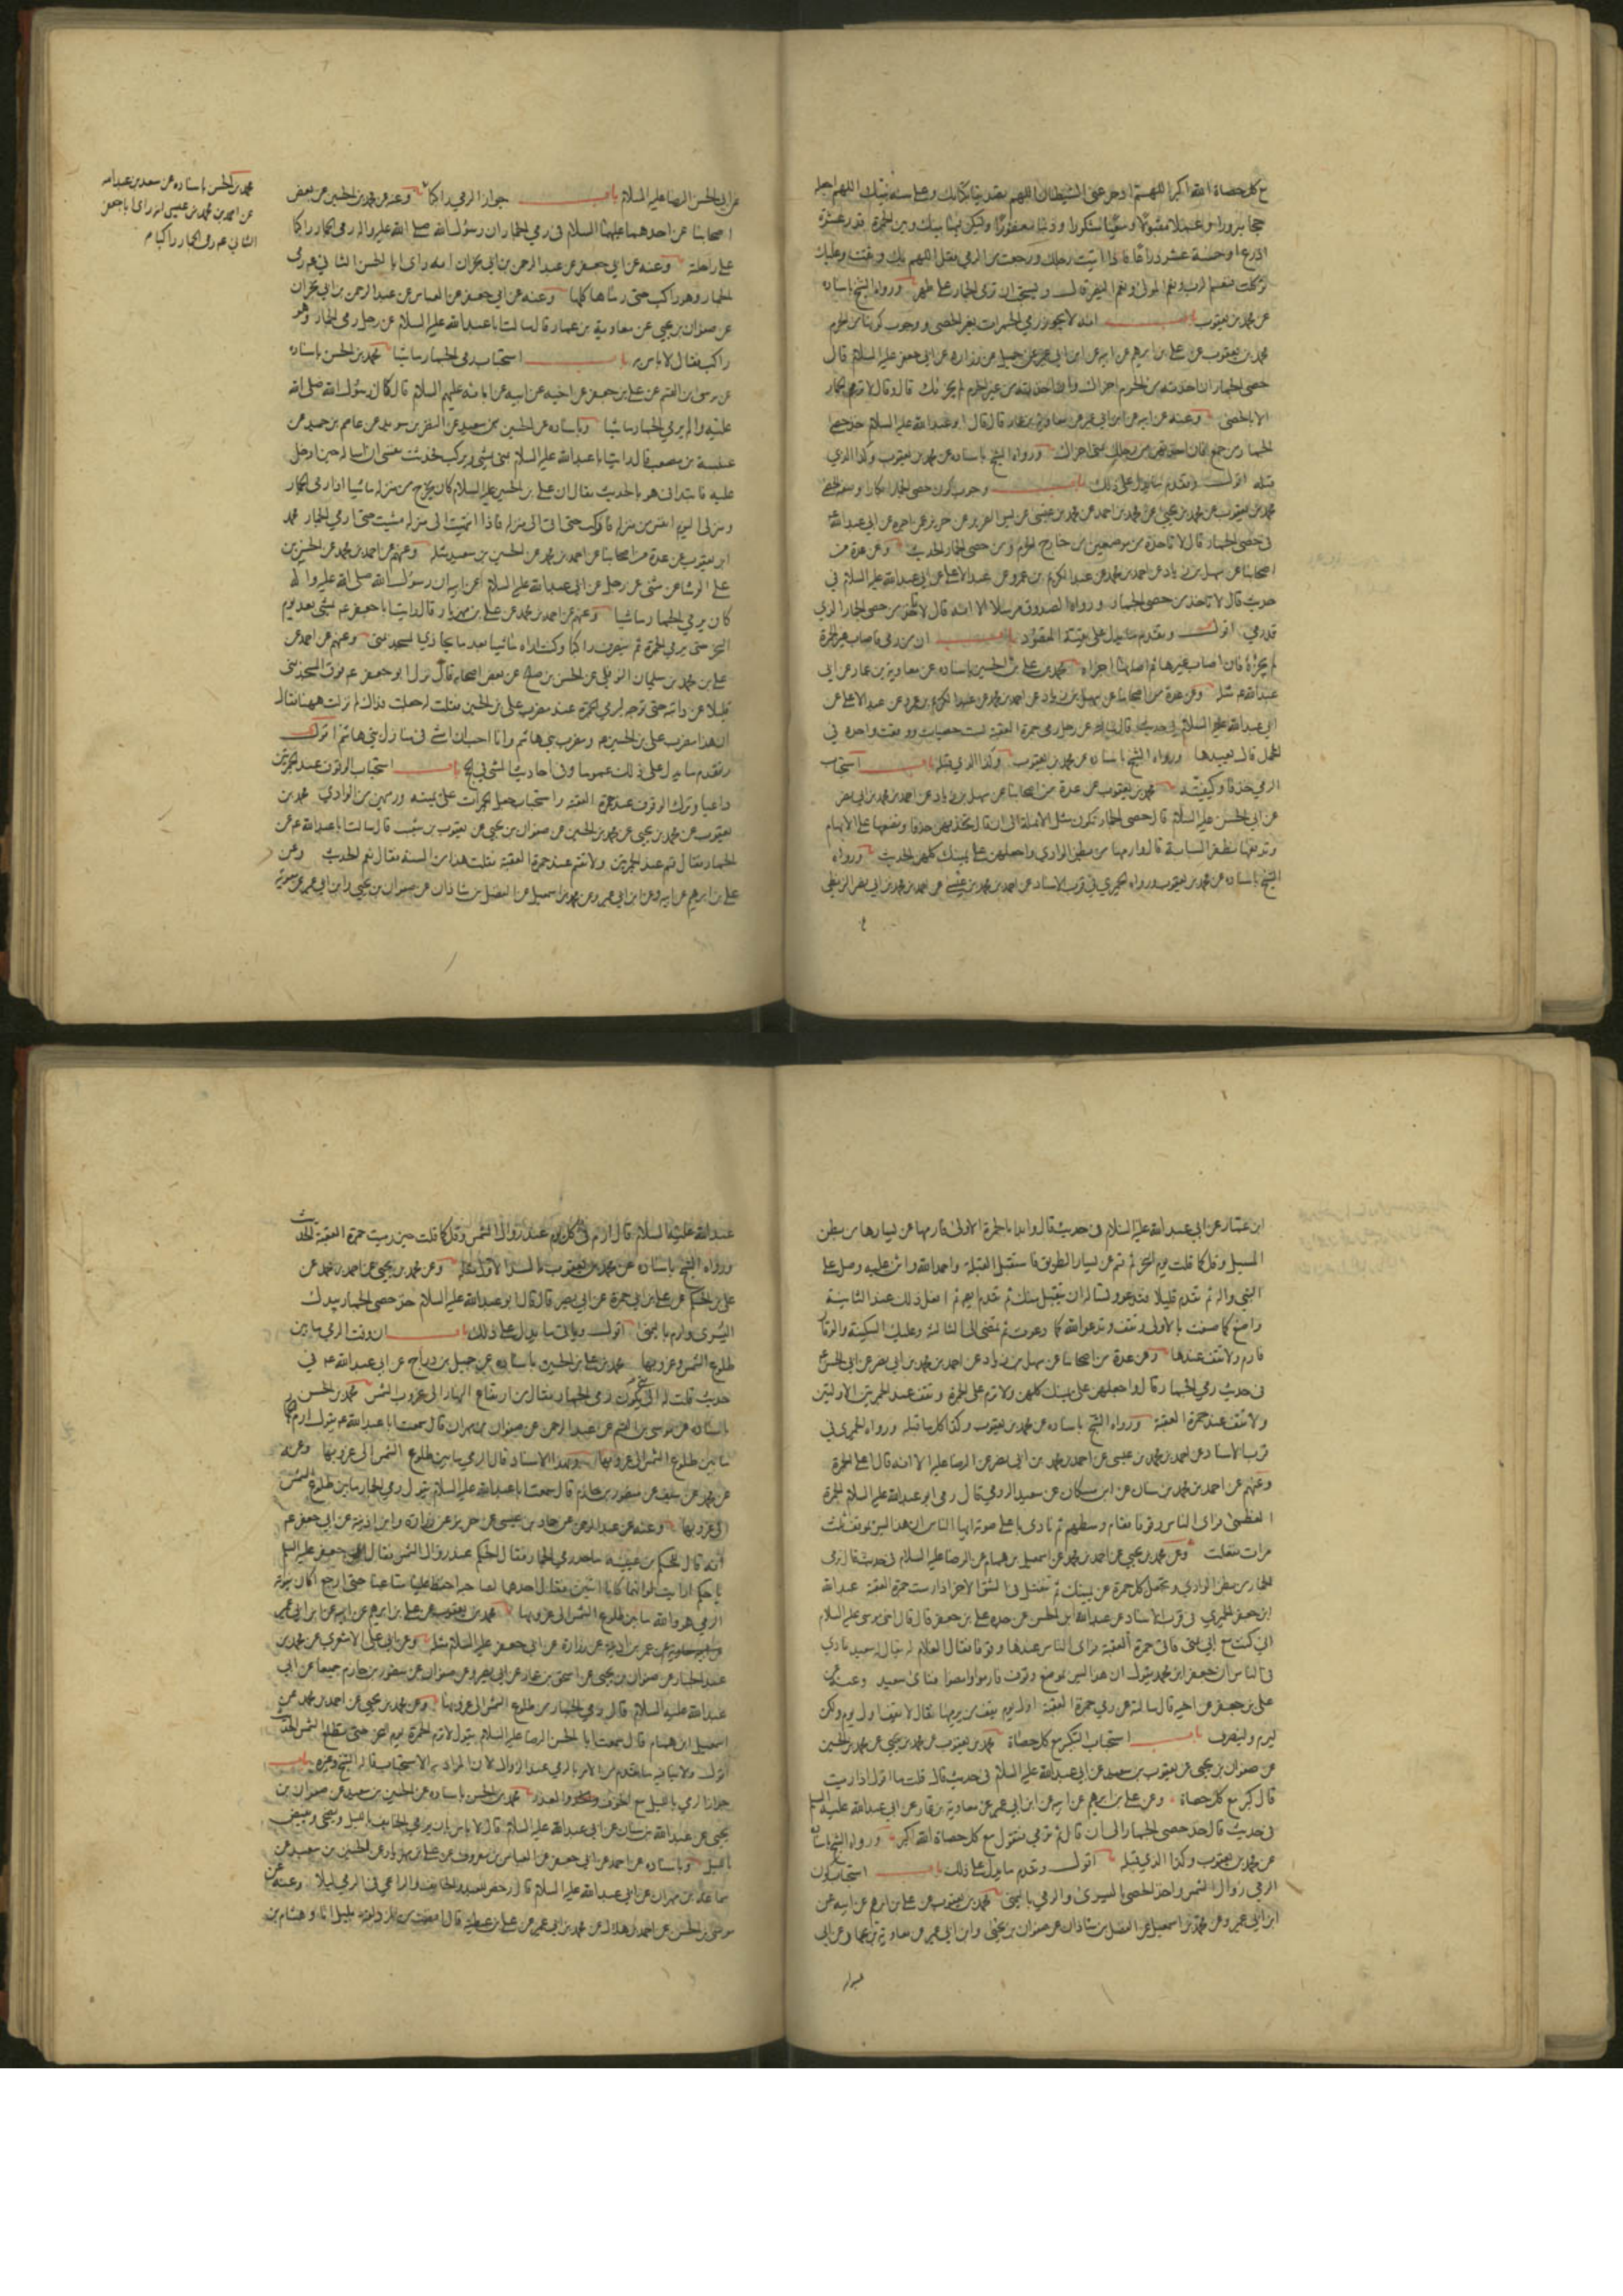 مع كل حصاة الله اكبر اللهم ادحر عني الشيطان اللهم تصديقا بكتابك وعلى سنة نبيك اللهم اجعله
حجا مبرورا وعملا مقبولا وسعيا مشكورا وذنبا مغفورا وليكن فيما بينك وبين الجمرة قدر عشرة
اذرع او خمسة عشر ذراعا فاذا اتيت رحلك ورجعت من الرمي فقل اللهم بك وثقت وعليك
توكلت فنعم الرب ونعم المولى ونعم النصير قال ويستحب ان ترمى الجمار على طهر ورواه الشيخ باسناده
عن محمد بن يعقوب باب انه لا يجوز رمي الجمرات بغير الحصى ووجوب كونها من الحرم
محمد بن يعقوب عن علي بن ابرهيم عن ابيه عن ابن ابي عمير عن جميل عن زرارة عن ابي جعفر عليه السلام قال
حصى الجمار ان اخذته من الحرم اجزاك وان اخذته من غير الحرم لم يجزئك قال وقال لا ترم الجمار
الا بالحصى وعنه عن ابيه عن ابن ابي عمير عن معاوية بن عمار قال قال ابو عبد الله عليه السلام خذ حصى
الجمار من جمع فان اخذته من رحلك بمنى اجزاك ورواه الشيخ باسناده عن محمد بن يعقوب وكذا الذي
قبله اقول وتقدم ما يدل على ذلك باب وجوب كون حصى الجمار ابكارا
في حصى الجمار قال لا تاخذه من موضعين من خارج الحرم ومن حصى الجمار الحديث وعن عدة من
اصحابنا عن سهل بن زياد عن احمد بن محمد عن عبد الكريم بن عمرو عن عبد الاعلى عن ابي عبد الله عليه السلام في
حديث قال لا تاخذ من حصى الجمار ورواه الصدوق مرسلا الا انه قال لا تاخذ من حصى الجمار الذي
قد رمي اقول وتقدم ما يدل على بقية المقصود باب ان من رمى فاصاب غير الجمرة
لم يجزه فان اصاب غيرها ثم اصابها اجزاه محمد بن علي بن الحسين باسناده عن معاوية بن عمار عن ابي
عبد الله ع مثله وعن عدة من اصحابنا عن سهل بن زياد عن احمد بن محمد عن عبد الكريم بن عمرو عن عبد الاعلى عن
ابي عبد الله عليه السلام في حديث قال سالته عن رجل رمى جمرة العقبة بست حصيات ووقعت واحدة في
المحمل قال يعيدها ورواه الشيخ باسناده عن محمد بن يعقوب وكذا الذي قبله باب استحباب
الرمي خذفا وكيفيته محمد بن يعقوب عن عدة من اصحابنا عن سهل بن زياد عن احمد بن محمد بن ابي نصر
عن ابي الحسن عليه السلام قال حصى الجمار تكون مثل الانملة الى ان قال تخذفهن خذفا وتضعها على الابهام
وتدفعها بظفر السبابة قال وارمها من بطن الوادي واجعلهن على يمينك كلهن الحديث ورواه
الشيخ باسناده عن محمد بن يعقوب ورواه الحميري في قرب الاسناد عن احمد بن محمد بن عيسى عن احمد بن محمد بن ابي نصر البزنطي
عن ابي الحسن الرضا عليه السلام باب جواز الرمي راكبا وعنه عن محمد بن الحسين عن بعض
اصحابنا عن احدهما عليهما السلام في رمي الجمار ان رسول الله صلى الله عليه واله رمى الجمار راكبا
على راحلته وعنه عن ابي جعفر عن عبد الرحمن بن ابي نجران انه راى ابا الحسن الثاني ع رمى
الجمار وهو راكب حتى رماها كلها وعنه عن ابي جعفر عن العباس عن عبد الرحمن بن ابي نجران
عن صفوان بن يحيى عن معاوية بن عمار قال سالت ابا عبد الله عليه السلام عن رجل رمى الجمار وهو
راكب فقال لا باس به باب استحباب رمي الجمار ماشيا محمد بن الحسن باسناده
عن موسى بن القسم عن علي بن جعفر عن اخيه عن ابيه عن ابائه عليهم السلام قال كان رسول الله صلى الله
عليه واله يرمي الجمار ماشيا وباسناده عن الحسين بن سعيد عن النضر بن سويد عن عاصم بن حميد عن
عنبسة بن مصعب قال رايت ابا عبد الله عليه السلام بمنى يمشي ويركب فحدثت نفسي ان اساله حين ادخل
عليه فابتداني هو بالحديث فقال ان علي بن الحسين عليه السلام كان يخرج من منزله ماشيا اذا رمى الجمار
ومنزلي اليوم انفس من منزله فاركب حتى اتي الى منزله فاذا انتهيت الى منزله مشيت حتى ارمي الجمار محمد
ابن يعقوب عن عدة من اصحابنا عن احمد بن محمد عن الحسين بن سعيد مثله وعنهم عن احمد بن محمد عن الحسن بن
علي الوشا عن مثنى عن رجل عن ابي عبد الله عليه السلام عن ابيه ان رسول الله صلى الله عليه واله
كان يرمي الجمار ماشيا وعنهم عن احمد بن محمد عن علي بن مهزيار قال رايت ابا جعفر ع يمشي بعد يوم
النحر حتى يرمي الجمرة ثم ينصرف راكبا وكنت اراه ماشيا بعد ما يحاذي المسجد بمنى وعنهم عن احمد عن
علي بن محمد بن سليمان النوفلي عن الحسن بن صالح عن بعض اصحابه قال نزل ابو جعفر ع فوق المسجد بمنى
قليلا عن دابته حتى توجه ليرمي الجمرة عند مضرب علي بن الحسين فقلت له جعلت فداك لم نزلت ههنا فقال
ان هذا مضرب علي بن الحسين ع ومضرب بني هاشم وانا احب ان امشي في منازل بني هاشم اقول
وتقدم ما يدل على ذلك عموما وفي احاديث المشي في الحج باب استحباب الوقوف عند الجمرتين
داعيا وترك الوقوف عند جمرة العقبة واستحباب جعل الجمرات على يمينه ورميهن من الوادي محمد بن
يعقوب عن محمد بن يحيى عن محمد بن الحسين عن صفوان بن يحيى عن يعقوب بن شعيب قال سالت ابا عبد الله ع عن
الجمار فقال قم عند الجمرتين ولا تقم عند جمرة العقبة فقلت هذا من السنة فقال نعم الحديث وعن
علي بن ابرهيم عن ابيه وعن ابن ابي عمير وعن محمد بن اسمعيل عن الفضل بن شاذان عن صفوان بن يحيى وابن ابي عمير عن معوية
محمد بن الحسن باسناده عن سعد بن عبد الله
عن احمد بن محمد بن عيسى انه راى ابا جعفر
الثاني ع رمى الجمار راكبا م
ابن عمار عن ابي عبد الله عليه السلام في حديث قال وابدا بالجمرة الاولى فارمها عن يسارها من بطن
المسيل وقل كما قلت يوم النحر ثم قم عن يسار الطريق فاستقبل القبلة واحمد الله واثن عليه وصل على
النبي واله ثم تقدم قليلا فتدعو وتساله ان يتقبل منك ثم تقدم ايضا ثم افعل ذلك عند الثانية
واصنع كما صنعت بالاولى وتقف وتدعو الله كما دعوت ثم تمضي الى الثالثة وعليك السكينة والوقار
فارم ولا تقف عندها وعن عدة من اصحابنا عن سهل بن زياد عن احمد بن محمد بن ابي نصر عن ابي الحسن ع
في حديث رمي الجمار قال واجعلهن على يمينك كلهن ولا ترم على الجمرة وتقف عند الجمرتين الاولتين
ولا تقف عند جمرة العقبة ورواه الشيخ باسناده عن محمد بن يعقوب وكذا كل ما قبله ورواه الحميري في
قرب الاسناد عن احمد بن محمد بن عيسى عن احمد بن محمد بن ابي نصر عن الرضا عليه الا انه قال على الجمرة
وعنهم عن احمد بن محمد عن ابن سنان عن ابن مسكان عن سعيد الرومي قال رمى ابو عبد الله عليه السلام الجمرة
العظمى فراى الناس وقوفا فقام وسطهم ثم نادى باعلى صوته ايها الناس ان هذا ليس بموقف ثلث
مرات ففعلت وعن محمد بن يحيى عن احمد بن محمد عن اسمعيل بن همام عن الرضا عليه السلام في حديث قال ترمى
الجمار من بطن الوادي وتجعل كل جمرة عن يمينك ثم تنفتل في الشق الاخر اذا رميت جمرة العقبة عبد الله
ابن جعفر الحميري في قرب الاسناد عن عبد الله ابن الحسن عن جده علي بن جعفر قال قال اخي موسى عليه السلام
اني كنت مع ابي بمنى فاتى جمرة العقبة فراى الناس عندها وقوفا فقال لغلام له يقال له سعيد نادي
في الناس ان جعفر ابن محمد يقول ان هذا ليس بموضع وقوف فارموا وامضوا فنادى سعيد وعنه عن
علي بن جعفر عن اخيه قال سالته عن رمي جمرة العقبة اول يوم يقف من يرميها فقال لا يقف اول يوم ولكن
ليرم ولينصرف باب استحباب التكبير مع كل حصاة محمد بن يعقوب عن محمد بن يحيى عن محمد بن الحسين
عن صفوان بن يحيى عن يعقوب بن شعيب عن ابي عبد الله عليه السلام في حديث قال قلت ما اقول اذا رميت
قال كبر مع كل حصاة وعن علي بن ابرهيم عن ابيه عن ابن ابي عمير عن معاوية بن عمار عن ابي عبد الله عليه السلام
في حديث قال خذ حصى الجمار الى ان قال ثم ترمي فتقول مع كل حصاة الله اكبر ورواه الشيخ باسناده
عن محمد بن يعقوب وكذا الذي قبله اقول وتقدم ما يدل على ذلك باب استحباب كون
الرمي زوال الشمس واخذ الحصى باليسرى والرمي باليمنى محمد بن يعقوب عن علي بن ابرهيم عن ابيه عن
ابن ابي عمير وعن محمد بن اسمعيل عن الفضل بن شاذان عن صفوان بن يحيى وابن ابي عمير عن معاوية بن عمار عن ابي
عبد الله عليه السلام قال ارم في كل يوم عند زوال الشمس وقل كما قلت حين رميت جمرة العقبة الحديث
ورواه الشيخ باسناده عن محمد بن يعقوب مثله وعن محمد بن يحيى عن احمد بن محمد عن
علي بن الحكم عن علي بن ابي حمزة عن ابي بصير قال قال ابو عبد الله عليه السلام خذ حصى الجمار بيدك
اليسرى وارم باليمنى اقول وياتي ما يدل على ذلك باب ان وقت الرمي ما بين
طلوع الشمس وغروبها محمد بن علي بن الحسين باسناده عن جميل بن دراج عن ابي عبد الله ع في
حديث قلت له الى متى يكون رمي الجمار فقال من ارتفاع النهار الى غروب الشمس محمد بن الحسن
باسناده عن موسى بن القسم عن عبد الرحمن عن صفوان بن مهران قال سمعت ابا عبد الله ع يقول ارم الجمار
ما بين طلوع الشمس الى غروبها وبهذا الاسناد قال الرمي ما بين طلوع الشمس الى غروبها وعنه
عن محمد عن سيف عن منصور بن حازم قال سمعت ابا عبد الله عليه السلام يقول رمي الجمار ما بين طلوع الشمس
الى غروبها وعنه عن عبد الرحمن عن حماد بن عيسى عن حريز عن زرارة وابن اذينة عن ابي جعفر ع
انه قال للحكم بن عتيبة ما حد رمي الجمار فقال الحكم عند زوال الشمس فقال ابو جعفر عليه السلام
يا حكم ارايت لو انهما كانا اثنين فقال احدهما لصاحبه احفظ علينا متاعنا حتى ارجع اكان يفوته
الرمي هو والله ما بين طلوع الشمس الى غروبها محمد بن يعقوب عن علي بن ابرهيم عن ابيه عن ابن ابي عمير
عن عمر بن اذينة عن زرارة عن ابي جعفر عليه السلام مثله وعن ابي علي الاشعري عن محمد بن
عبد الجبار عن صفوان بن يحيى عن اسحق بن عمار عن ابي بصير وعن صفوان عن منصور بن حازم جميعا عن ابي
عبد الله عليه السلام قال رمي الجمار من طلوع الشمس الى غروبها وعن محمد بن يحيى عن احمد بن محمد عن
اسمعيل ابن همام قال سمعت ابا الحسن الرضا عليه السلام يقول لا ترم الجمرة يوم النحر حتى تطلع الشمس الحديث
اقول ولا ينافيه ما تقدم من الامر بالرمي عند الزوال لان المراد به الاستحباب قاله الشيخ وغيره باب
جواز الرمي بالليل مع الخوف والعذر محمد بن الحسن باسناده عن الحسين بن سعيد عن صفوان بن
يحيى عن عبد الله بن سنان عن ابي عبد الله عليه السلام قال لا باس بان يرمي الخائف بالليل ويضحي ويفيض
بالليل وباسناده عن احمد عن ابي جعفر عن العباس بن معروف عن علي بن مهزيار عن الحسين بن سعيد عن
سماعة بن مهران عن ابي عبد الله عليه السلام قال رخص للعبد والخائف والراعي في الرمي ليلا وعنه عن
موسى بن الحسن عن احمد بن هلال عن محمد بن ابي عمير عن علي بن عطية قال افضنا من المزدلفة بليل انا وهشام بن